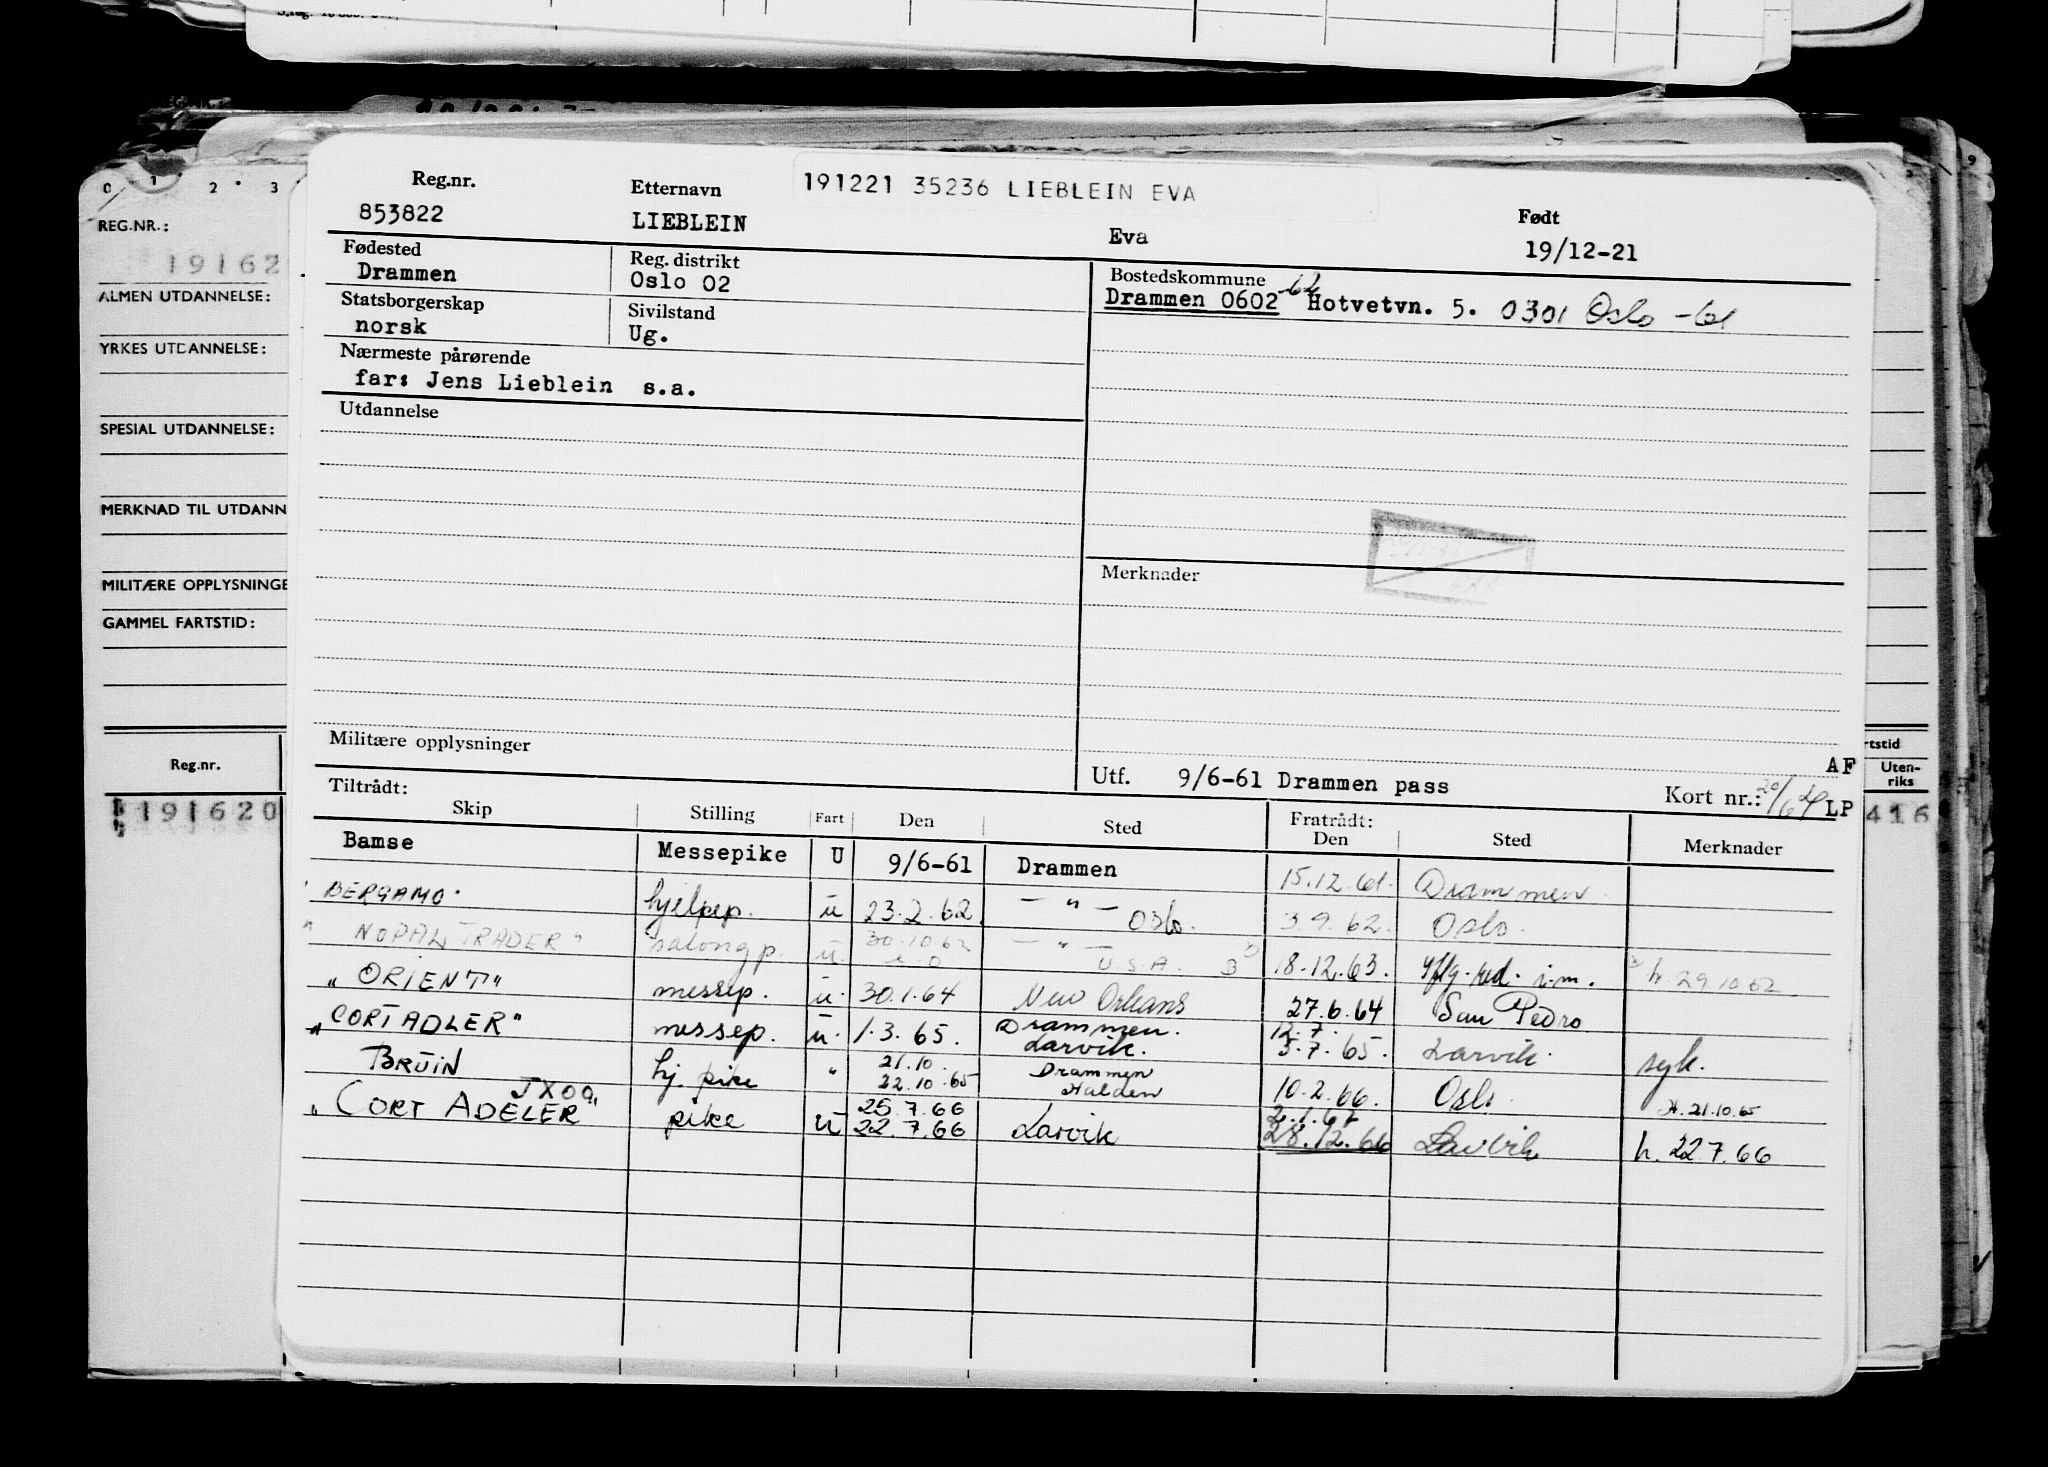 0 1 2 3
REG.NR.:
19162
ALMEN UTDANNELSE:
YRKES UTDANNELSE:
SPESIAL UTDANNELSE:
MERKNAD TIL UTDANN
MILITÆRE OPPLYSNINGE
GAMMEL FARTSTID:
Reg.nr.
191620
191221 35236 LIEBLEIN EVA
Reg.nr. Etternavn Født
853822 LIEBLEIN Eva 19/12-21
Fødested Reg. distrikt Bostedskommune
Drammen Oslo 02 Drammen 0602 -62 Hotvetvn. 5. 0301 Oslo -61
Statsborgerskap Sivilstand
norsk Ug.
Nærmeste pårørende
far: Jens Lieblein s.a.
Utdannelse
Merknader
Militære opplysninger
Utf. 9/6-61 Drammen pass
Kort nr.:
AF
LP
rtstid
Uten-
riks
416
Tiltrådt: Fratrådt:
Skip Stilling Fart Den Sted Den Sted Merknader
Bamse Messepike U 9/6-61 Drammen 15.12.61. Drammen
"BERGAMO" hjelpep. u 23.2.62. — " — Oslo. 3.9.62. Oslo.
"NOPAL TRADER" salongp. u. 30.10.62 — " — U.S.A. 18.12.63. i.m. h. 29.10.62
"ORIENT" messep. u. 30.1.64 New Orleans 27.6.64 San Pedro
"CORT ADLER" messep. u. 1.3.65. Drammen. Larvik. 12.7. 5.7.65. Larvik. syk.
BRUIN hj. pike " 21.10. 22.10.65 Drammen Halden 10.2.66. Oslo. h. 21.10.65
JXOQ
"CORT ADELER" pike u 25.7.66 22.7.66 Larvik 2.1.67 28.12.66 Larvik h. 22.7.66